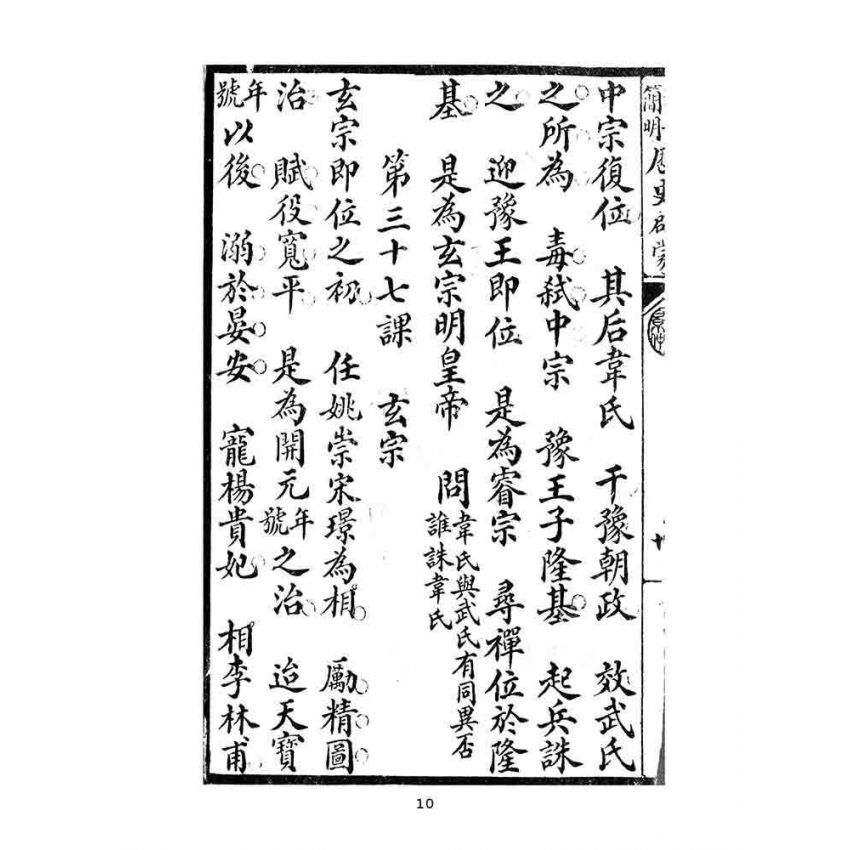 簡明歷史啟蒙
中宗復位　其后韋氏　干豫朝政　效武氏
之所為　毒弒中宗　豫王子隆基　起兵誅
之　迎豫王即位　是為睿宗　尋禪位於隆
基　是為玄宗明皇帝　問韋氏與武氏有同異否誰誅韋氏
第三十七課　玄宗
玄宗即位之初　任姚崇宋璟為相　勵精圖
治　賦役寬平　是為開元年號之治　迨天寶
年號以後　溺於晏安　寵楊貴妃　相李林甫
10